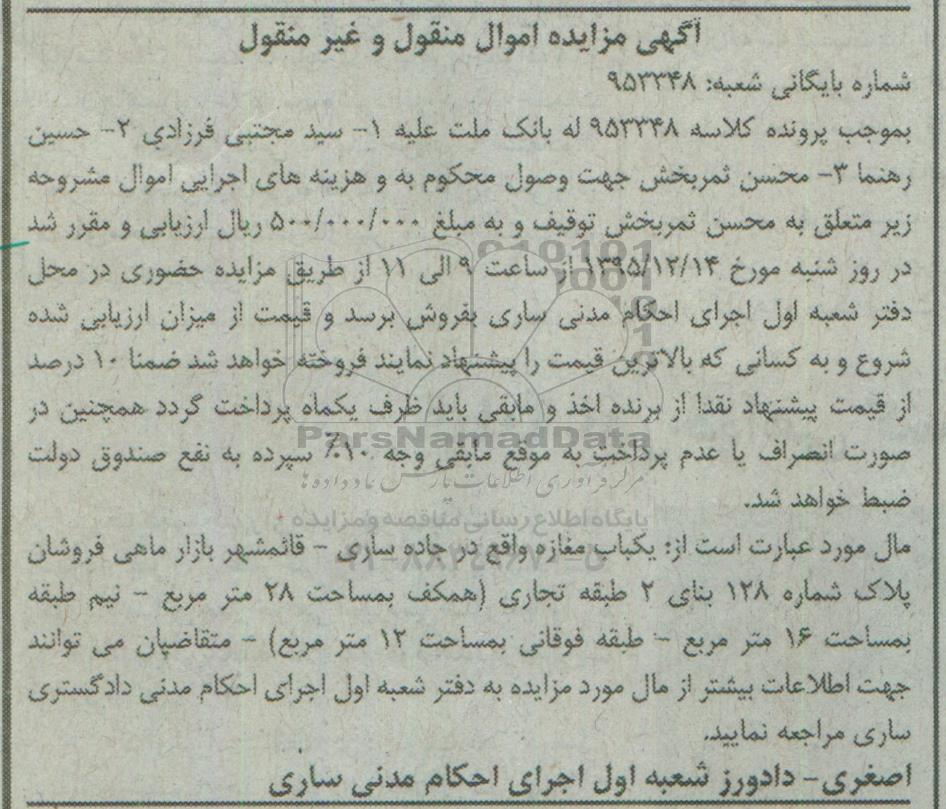 آگهی مزایده اموال منقول و غیر منقول
شماره بایگانی شعبه: ۹۵۳۳۴۸
بموجب پرونده کلاسه ۹۵۳۳۴۸ له بانک ملت علیه ۱- سید مجتبی فرزادی ۲- حسین
رهنما ۳- محسن ثمربخش جهت وصول محکوم به و هزینه های اجرایی اموال مشروحه
زیر متعلق به محسن ثمربخش توقیف و به مبلغ ۵۰۰/۰۰۰/۰۰۰ ریال ارزیابی و مقرر شد
در روز شنبه مورخ ۱۳۹۵/۱۲/۱۴ از ساعت ۹ الی ۱۱ از طریق مزایده حضوری در محل
دفتر شعبه اول اجرای احکام مدنی ساری بفروش برسد و قیمت از میزان ارزیابی شده
شروع و به کسانی که بالاترین قیمت را پیشنهاد نمایند فروخته خواهد شد ضمنا ۱۰ درصد
از قیمت پیشنهاد نقدا از برنده اخذ و مابقی باید ظرف یکماه پرداخت گردد همچنین در
ParsNamadData
صورت انصراف یا عدم پرداخت به موقع مابقی وجه ۱۰٪ سپرده به نفع صندوق دولت
مرکز فرآوری اطلاعات پارس نماد داده ها
ضبط خواهد شد.
پایگاه اطلاع رسانی مناقصه و مزایده
مال مورد عبارت است از: یکباب مغازه واقع در جاده ساری - قائمشهر بازار ماهی فروشان
پلاک شماره ۱۲۸ بنای ۲ طبقه تجاری (همکف بمساحت ۲۸ متر مربع - نیم طبقه
بمساحت ۱۶ متر مربع - طبقه فوقانی بمساحت ۱۲ متر مربع) - متقاضیان می توانند
جهت اطلاعات بیشتر از مال مورد مزایده به دفتر شعبه اول اجرای احکام مدنی دادگستری
ساری مراجعه نمایید.
اصغری- دادورز شعبه اول اجرای احکام مدنی ساری